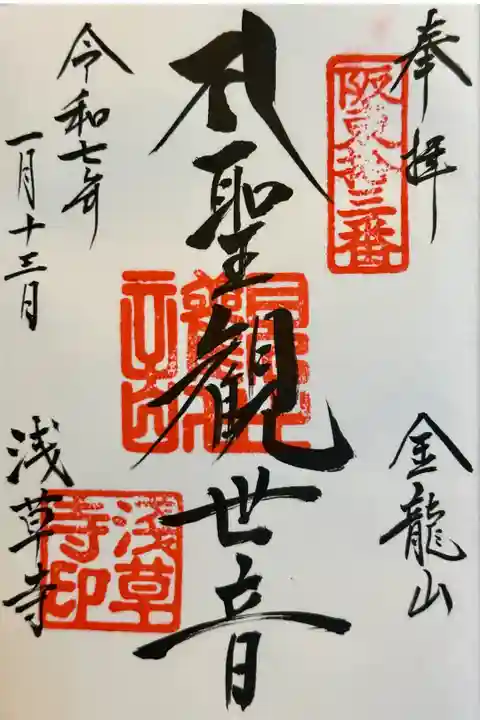 奉拝
阪東拾三番
金龍山
聖観世音
令和七年
一月十三日
浅草寺
浅草
寺印